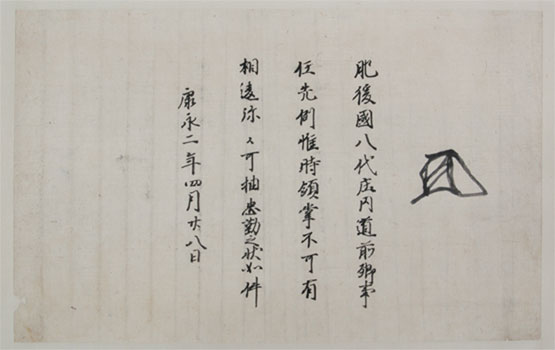 肥後國八代庄内道前郷事
任先例惟時領掌不可有
相違弥〻可抽忠勤之状如件
康永二年四月廿八日